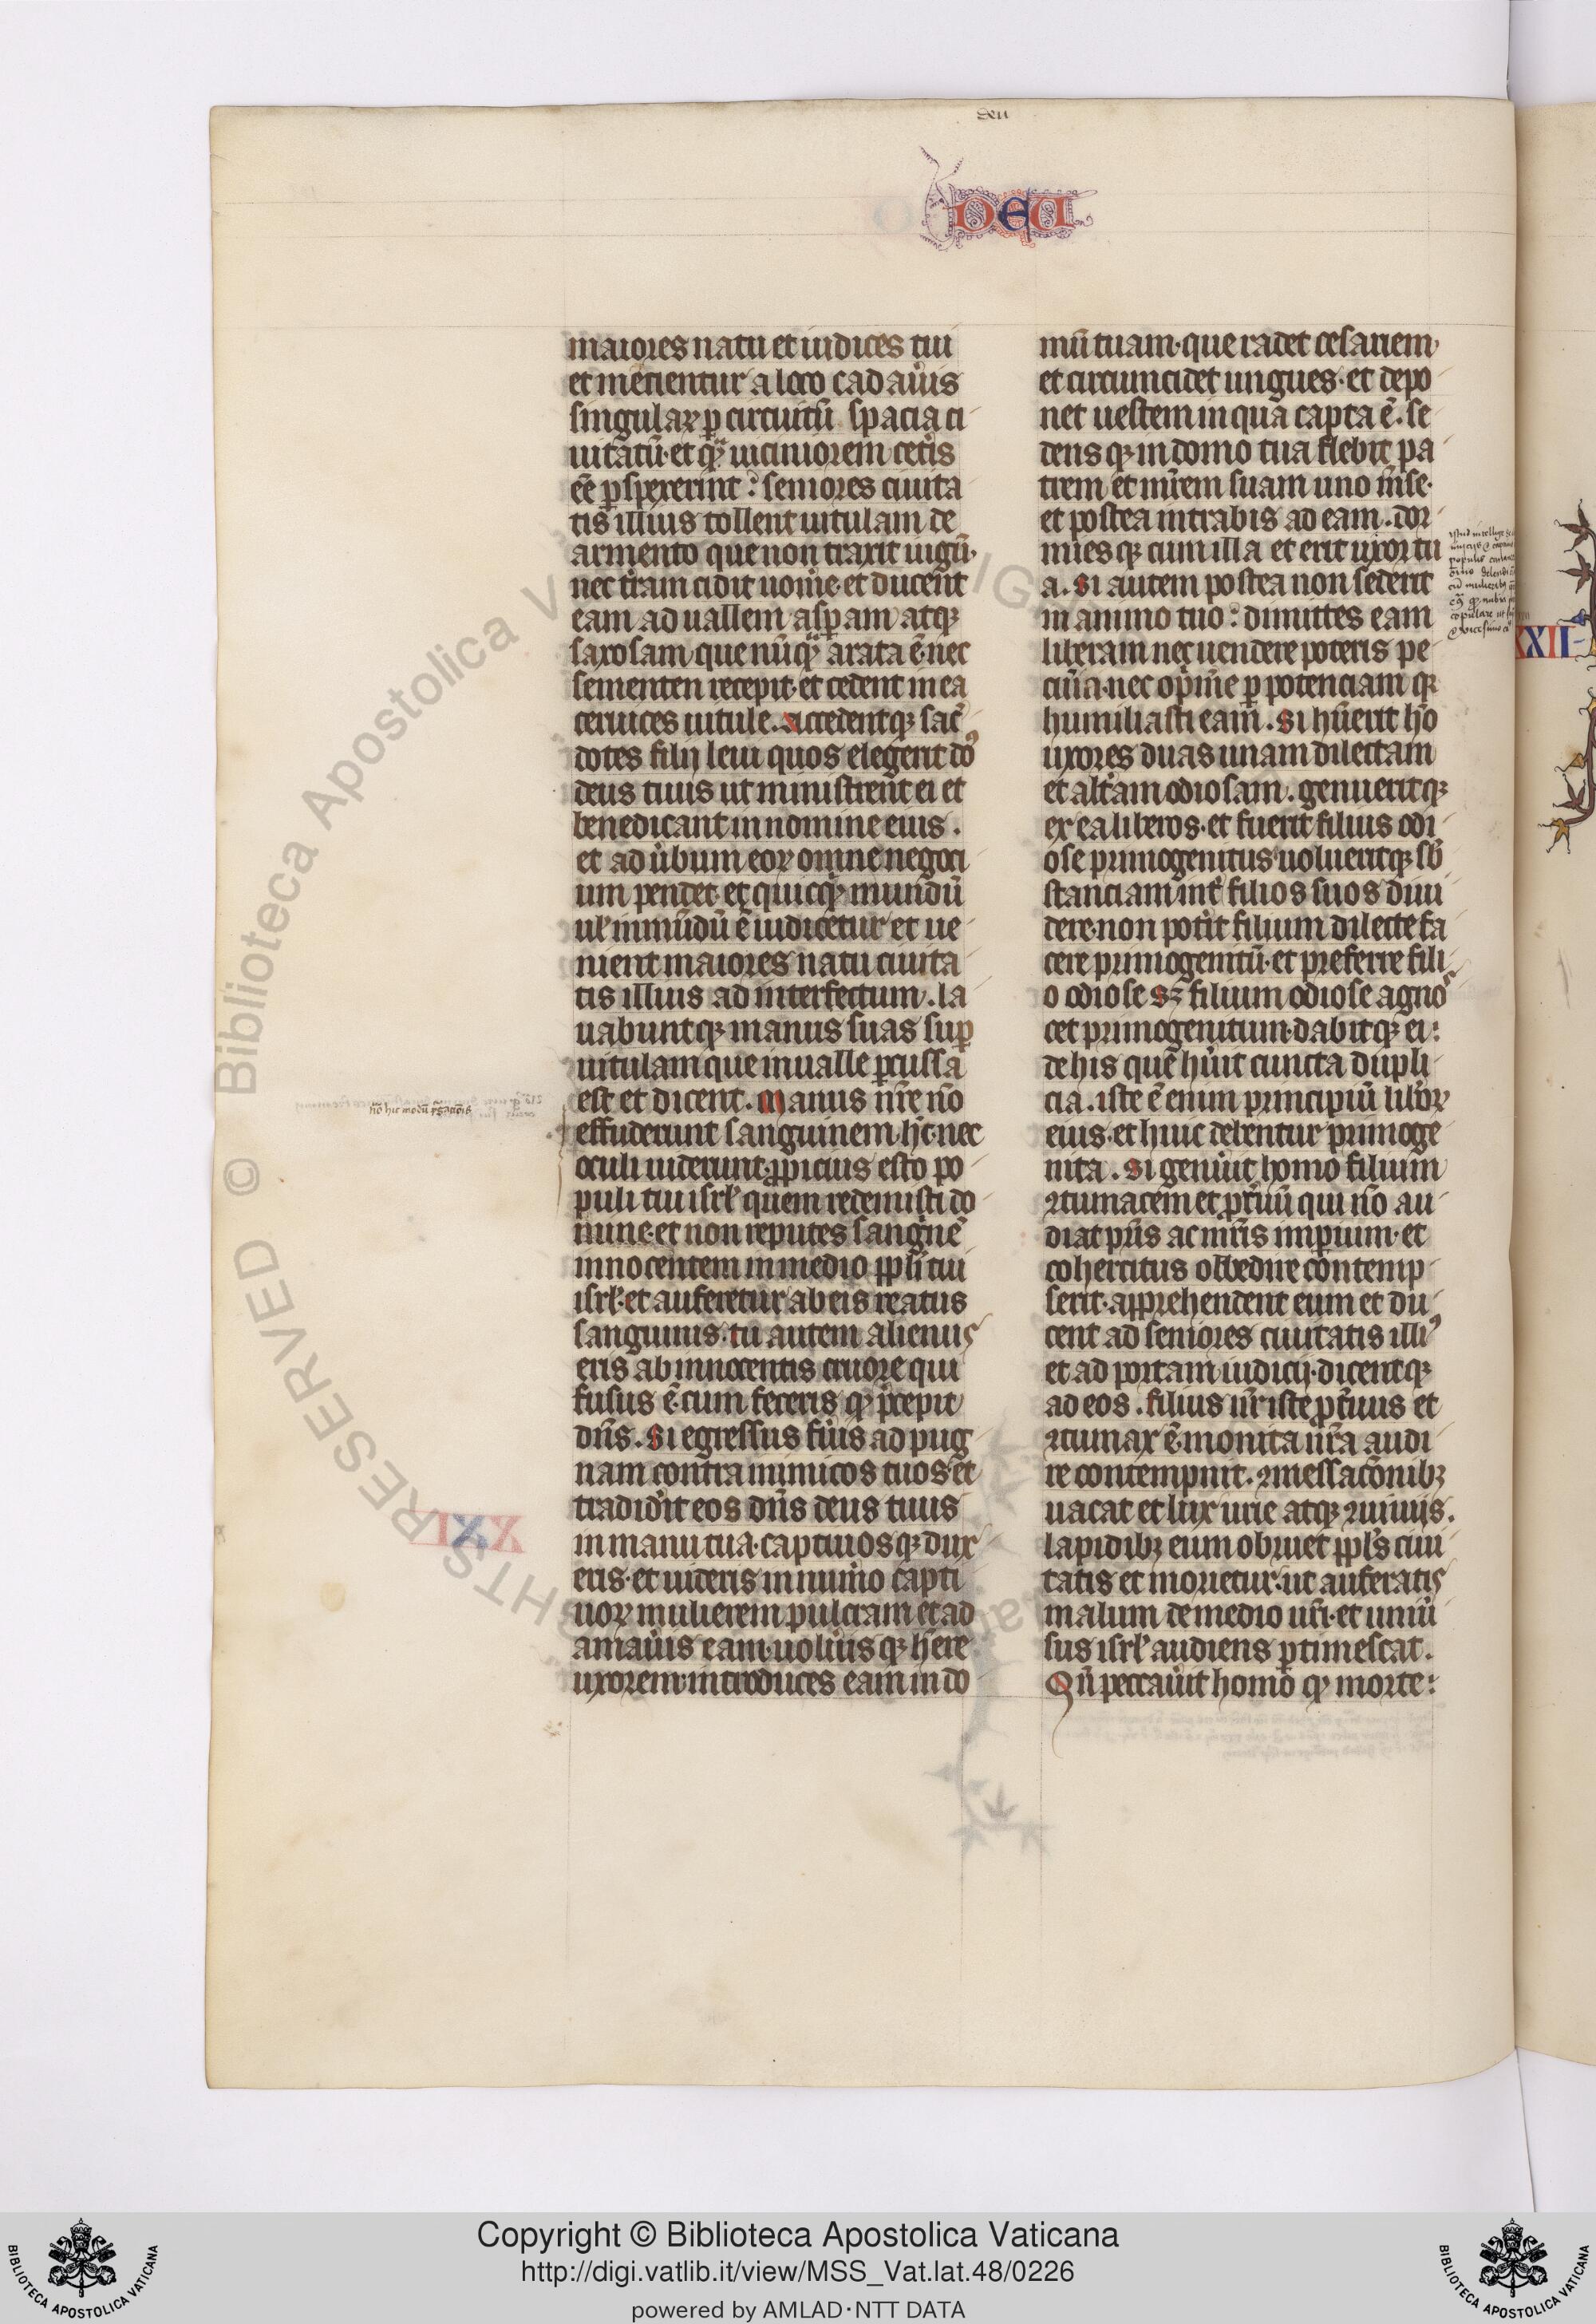 deu
DEU
maiores natu et iudices tui
et mecientur a loco cadau̾is
singularꝝ ꝑ circuitū spacia ci
uitatū· et quā uiciniorem cet̾is
eē ꝑspexerint : seniores ciuita
tis illius tollent uitulam de
armento que non traxit iugū·
nec t̾ram cidit uom̾e· et ducent
eam ad uallem asꝑam atqꝫ
saxosam que nūqᵃ arata ē· nec
sementen recepit· et cedent in ea
ceruices uitule. Accedentqꝫ sac̾
dotes filij leui quos elegerit do᷒
deus tuus ut ministrent ei et
benedicant in nomine eius .
et ad u̾bum eoꝝ omne negoci
um pendet· et quicqᵈ mundū
ul̾ inmūdū ē iudicetur et ue
nient maiores natu ciuita
tis illius ad interfectum . la
uabuntqꝫ manus suas suꝑ
uitulam que in ualle ꝑcussa
est et dicent . Manus nr̄e nō
effuderunt sanguinem hc̄· nec
oculi uiderunt· ꝓpicius esto po
puli tui isrl̾ quem redemisti do
mine· et non reputes sang̾nē
innocentem in medio ppl̾i tui
isrl̾· et auferetur ab eis reatus
sanguinis· tu autem alienus
eris ab innocentis cruore qui
fusus ē· cum feceris qᵈ p̾cepit
dn̄s . Si egressus fu̾is ad pug
nam contra inimicos tuos· et
tradid̾it eos dn̄s deus tuus
in manu tua· captiuosqꝫ dux
eris· et uideris in num̾o capti
uoꝝ mulierem pulcram et ad
amau̾is eam· uolu̾isqꝫ h̾ere
uxorem· introduces eam in do
mū tuam· que radet cesariem
et circumcidet ungues· et depo
net uestem in qua capta ē . se
densqꝫ in domo tua flebit pa
trem et mr̄em suam uno m̄se·
et postea intrabis ad eam . dor
miesqꝫ cum illa et erit uxor tu
a . Si autem postea non sederit
in animo tuo : dimittes eam
liberam nec uendere poteris pe
cunia· nec op̾m̾e ꝑ potenciam qꝛ
humiliasti eam . Si hūerit hō
uxores duas unam dilectam
et alt̾am odiosam . genueritqꝫ
ex ea liberos· et fuerit filius odi
ose primogenitus uolueritqꝫ sb̄
stanciam int̾ filios suos diui
dere· non pot̾it filium dilecte fa
cere primogenitū· et preferre fili
o odiose Sꝫ filium odiose agnos
cet primogenitum· dabitqꝫ ei :
de his que hu̾it cuncta dupli
cia . iste ē enim principiū lib̾oꝝ
eius· et huic debentur primoge
nita . Si genu̾it homo filium
ꝯtumacem et ꝓt̾uū qui nō au
diat pr̄is ac mr̄is imꝑium· et
cohercitus obbedire contemp
serit· apprehendent eum et du
cent ad seniores ciuitatis illi᷒
et ad portam iudicii· dicentqꝫ
ad eos . filius nr̄ iste ꝓt̾uus et
ꝯtumax ē· monita nr̄a audi
re contempnit . ꝯmessac̄onibꝫ
uacat et luxurie atqꝫ ꝯuiuijs .
lapidibꝫ eum obruet ppl̾s ciui
tatis et morietur· ut auferatis
malum de medio uri· et uniu̾
sus isrl̾ audiens ꝑtimescat .
Qn̄ peccau̾it homo qᵈ morte :
XXI
XXII
Copyright © Biblioteca Apostolica Vaticana
http://digi.vatlib.it/view/MSS_Vat.lat.48/0226
powered by AMLAD·NTT DATA
BIBLIOTECA APOSTOLICA VATICANA
BIBLIOTECA APOSTOLICA VATICANA